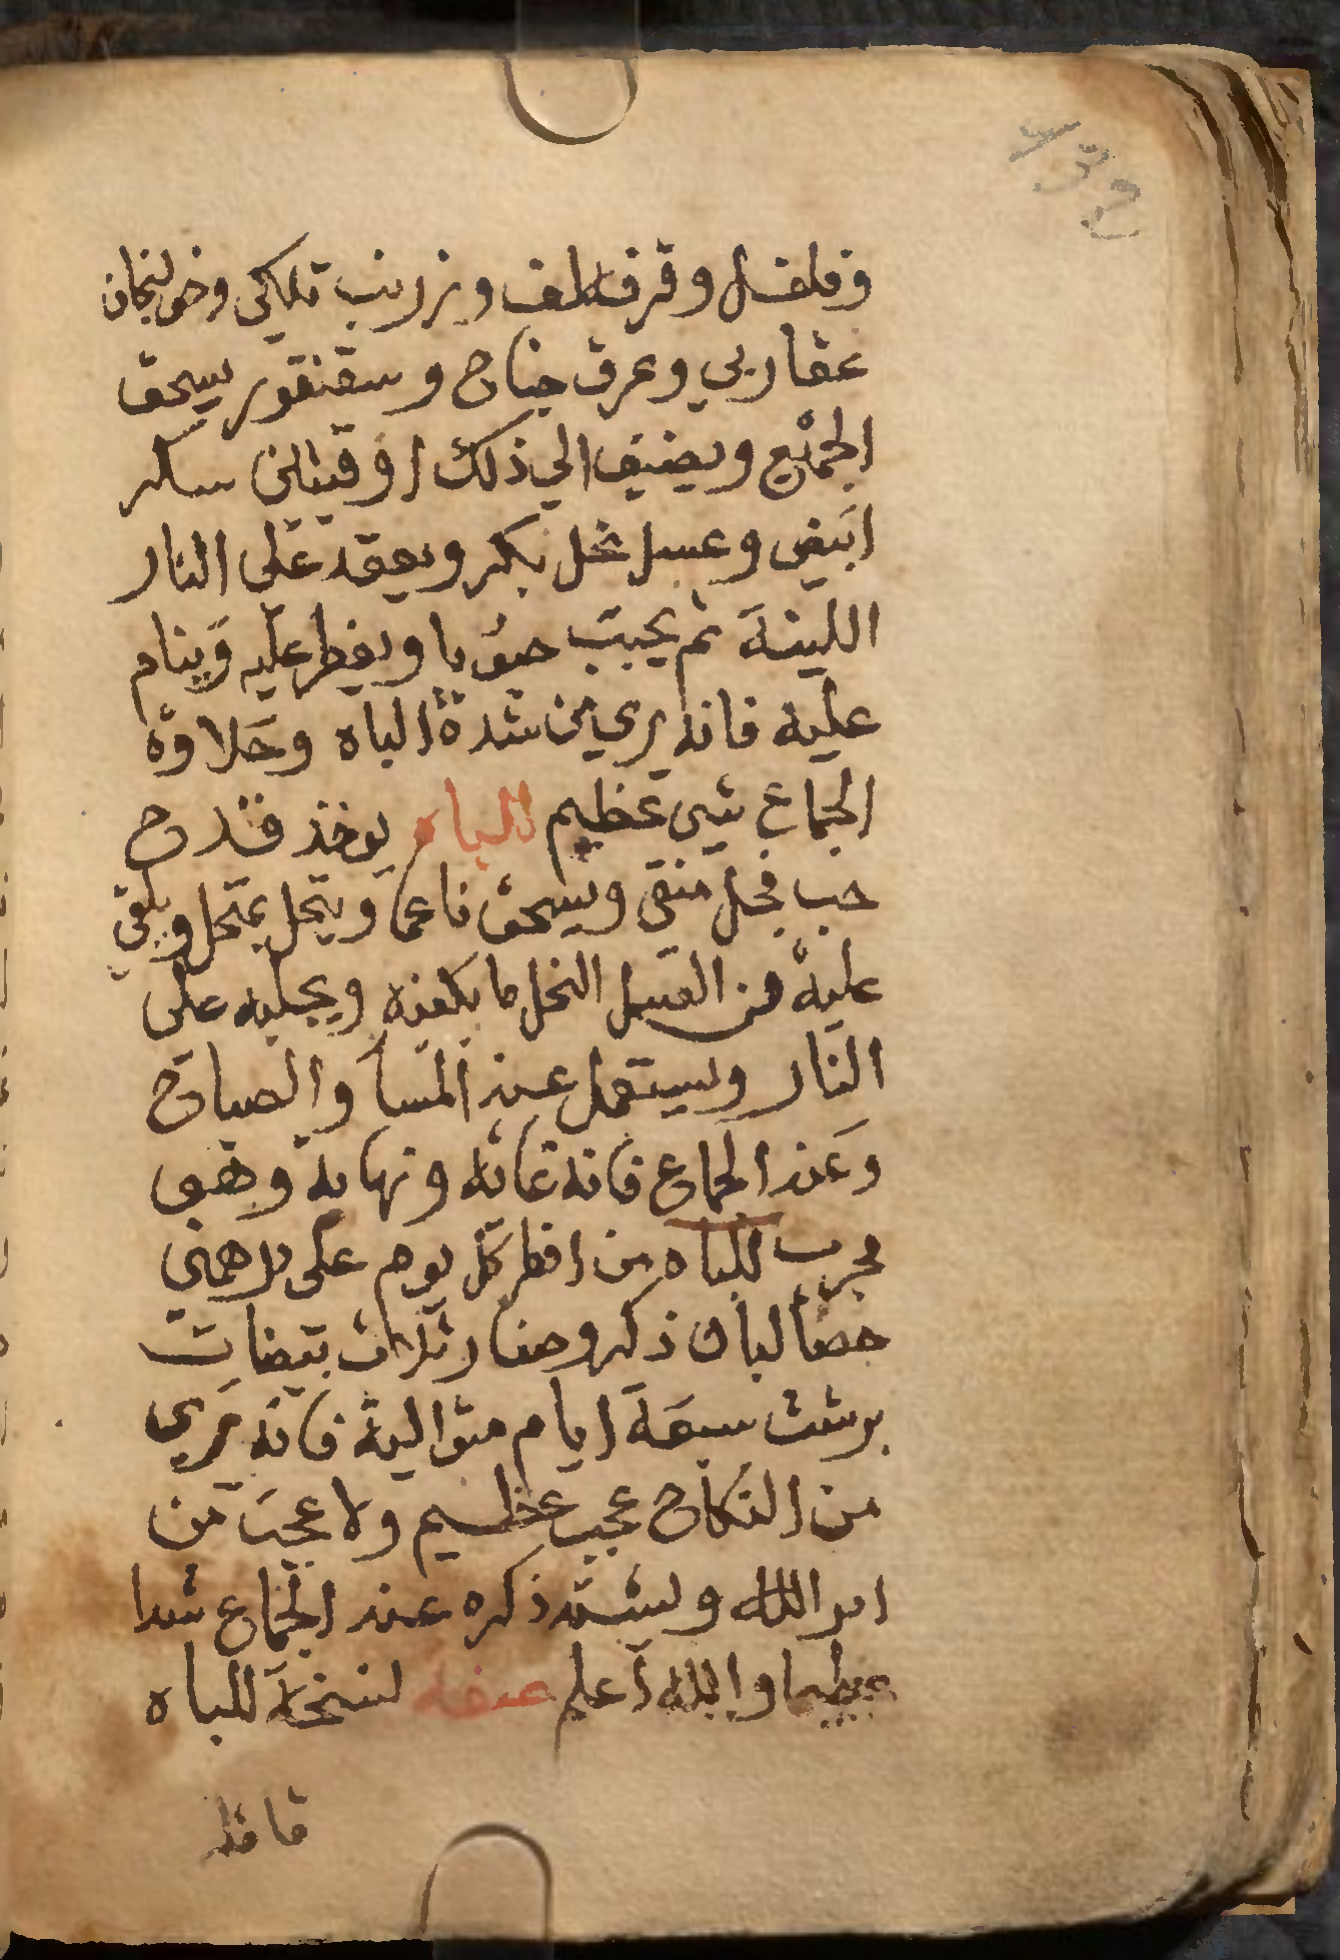 وفلفل وقرفه لف وزرنب تلكي وخولنجان
عقاربي وعرق جناح وسقنقور يسحق
الجميع ويضيف الي ذلك اوقيتين سكر
ابيض وعسل نحل بكر ويعقد علي النار
اللينة ثم يحبب حبوبا ويفطر عليه وينام
عليه فانه يري من شدة الباه وحلاوة
الجماع شي عظيم للباه يوخذ قدح
حب فجل منقي ويسحق ناعما وينخل بمنخل ويلقي
عليه من العسل النحل ما يكفيه ويجعله علي
النار ويستعمل عند المسا والصباح
وعند الجماع فانه غايه ونهاية وهو
مجرب للباه من افطر كل يوم علي درهمين
حصا لبان ذكر وصفار ثلاث بيضات
برشت سبعة ايام متوالية فانه يري
من النكاح عجب عظيم ولا عجب من
امر الله ويشتد ذكره عند الجماع شدا
عظيما والله اعلم صفة نسخة للباه